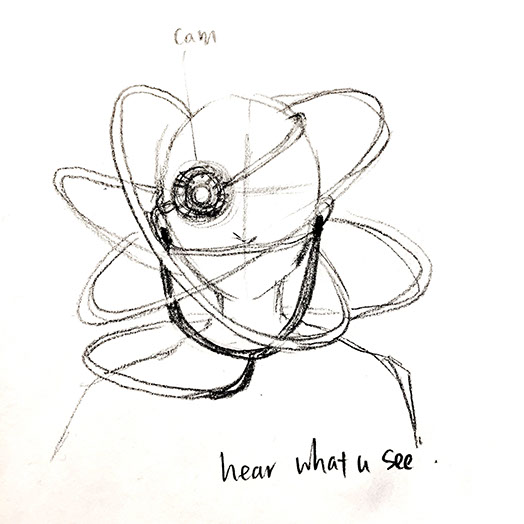 cam
hear what u see .